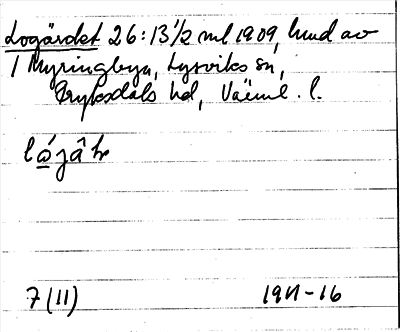 Logärdet 26:13 1/2 ml 1909, hmd av
1 Myringbyn, Lysviks sn,
Fryksdals hd, Värml. l.
7 (11) 1911-16